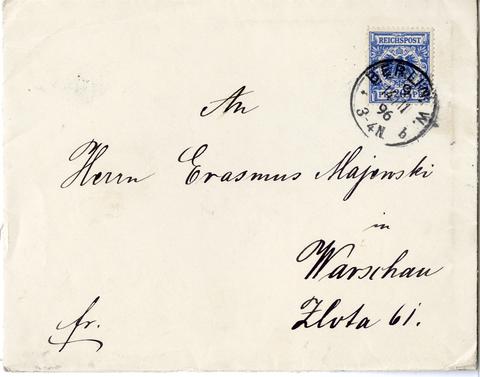 REICHSPOST
BERLIN W.
96
3-4N
An
Herrn Erasmus Majewski
in
Warschau
Zlota 61.
fr.